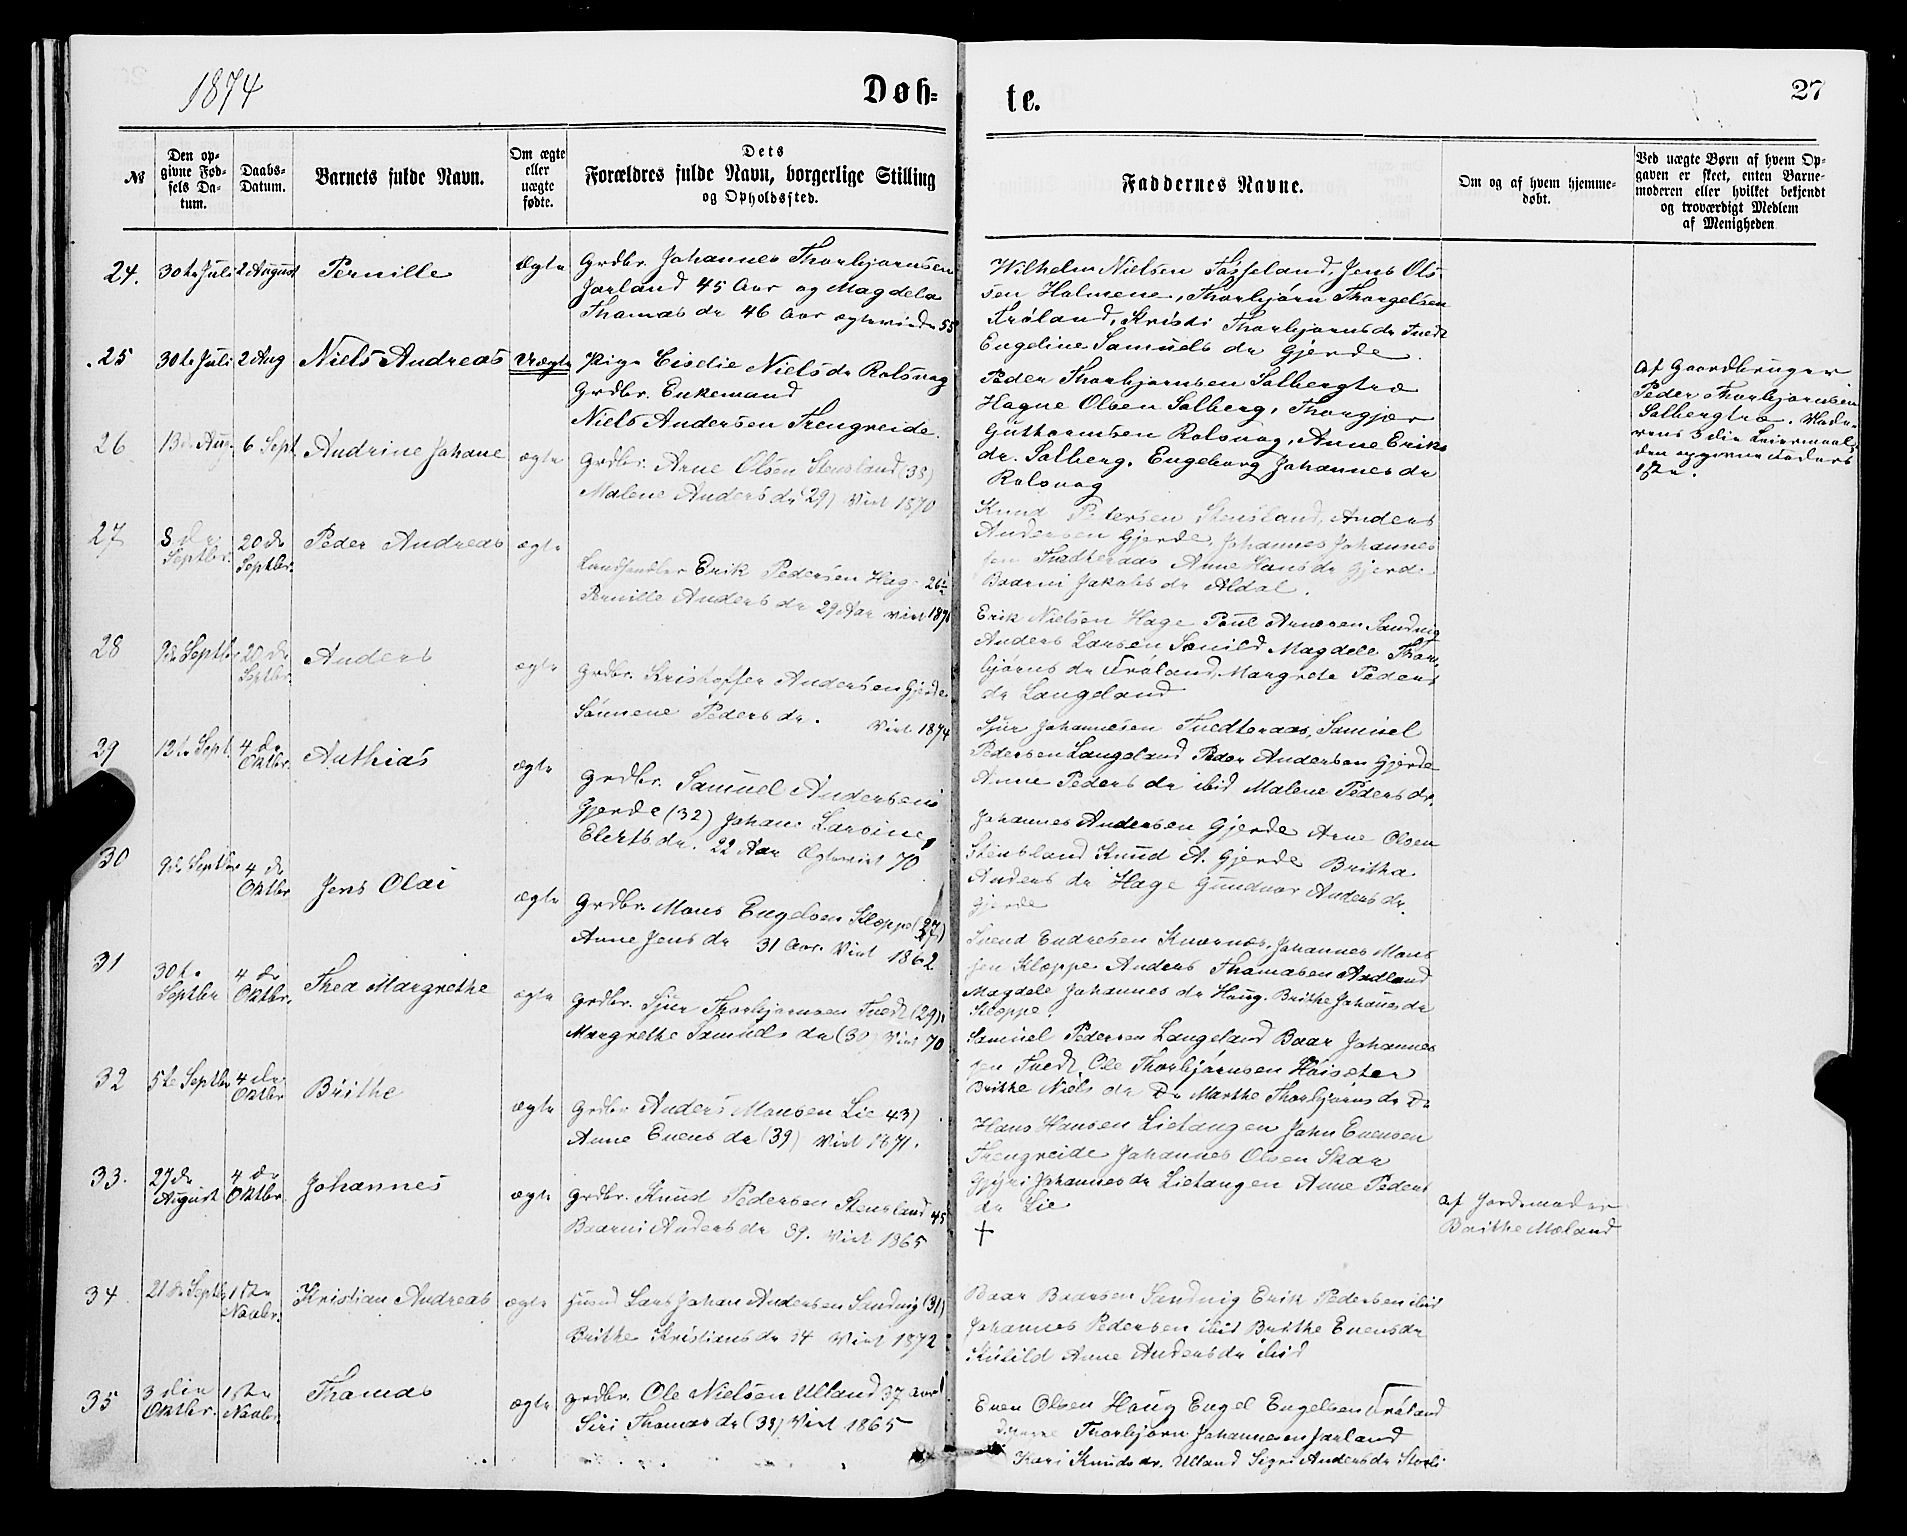 1874
Døb=
te.
27
№
Den opgivne Fødsels Datum.
Daabs-Datum.
Barnets fulde Navn.
Om ægte eller uægte fødte.
Dets
Forældres fulde Navn, borgerlige Stilling
og Opholdssted.
Faddernes Navne.
Om og af hvem hjemmedøbt.
Ved uægte Børn af hvem Opgaven er skeet, enten Barnemoderen eller hvilket bekjendt og troværdigt Medlem af Menigheden
24. 30te Juli 2 August Pernille Ægte
Grdbr. Johannes Thorbjørnsen
Jarland 45 Aar og Magdela
Thomasdr 46 Aar ægteviede 55
Wilhelm Nielsen Fosseland, Jens Ol-
sen Holmene, Thorbjørn Thorgelsen
Frøland, Kristi Thorbjørnsdr Tvedt
Engeline Samuelsdr Gjerde.
25 30te Juli 2 Aug Niels Andreas Uægte
Pige Ciselie Nielsdr Rolsvog
Grdbr. Enkemand
Niels Andersen Trengreide.
Peder Thorbjørnsen Solbergtræ
Hagne Olsen Solberg, Thorgjær
Guthormsen Rolsvog, Anne Eriks
dr. Solberg, Engeborg Johannesdr
Rolsvog
af Gaardbruger
Peder Thorbjørnsen
Solbergtræ. Mode-
rens 3die Leiermaal
den opgivne Faders
1ste.
26 13de Aug. 6 Sept Andrine Johane ægte
Grdbr. Arne Olsen Stensland (38)
Malene Andersdr 29) Viet 1870
Knud Petersen Stensland, Anders
Andersen Gjerde, Johannes Johannes
sen Tvedteraas Anne Hansdr Gjerde
Baarni Jakobsdr Aldal.
27 8de Septbr. 20de Septbr. Peder Andreas ægte
Landhandler Erik Pedersen Hage 26
Pernille Andersdr 29 Aar Viet 187
Erik Nielsen Hage Poul Arnesen Sandvig
Anders Larsen Sævild Magdele Thor-
bjørnsdr Frøland, Margrete Peders
dr Langeland
28 9de Septbr 20de Septbr. Anders ægte
Grdbr. Kristoffer Andersen Gjerde
Sønnene Pedersdr. Viet 1874
Sjur Johannesen Tvedteraas, Samuel
Pedersen Langeland Peder Andersen Gjerde
Anne Pedersdr ibid Malene Pedersdr.
29 12te Sept. 4de Oktbr. Aathias ægte
Grdbr. Samuel Andersen
Gjerde (32) Johane Larsine
Elertsdr. 22 Aar Ægteviet 70
Johannes Andersen Gjerde Arne Olsen
Stensland Knud A. Gjerde Britha
Andersdr Hage Gundvor Andersdr.
Gjerde
30 9de Septbr 4de Oktbr Jens Olai ægte
Grdbr. Mons Engelsen Kloppe (37)
Anne Jensdr 31 Aar Viet 1862
Svend Endresen Knarnæs, Johannes Mons
sen Kloppe Anders Thomasen Aadland
Magdele Johannesdr Haug. Brithe Johanesdr
Kloppe.
31 30te Septbr 4de Oktbr. Thea Margrethe ægte
Grdbr. Sjur Thorbjørnsen Tvedt (29).
Margrethe Samuelsdr (30) Viet 70
Samuel Pedersen Langeland Baar Johannes
sen Tvedt, Ole Thorbjørnsen Høisæter
Brithe Nielsdr Do Marthe Thorbjørnsdr Do
32 5te Septbr 4de Oktbr Brithe ægte
Grdbr Anders Monsen Lie 43)
Anne Evensdr (39) Viet 1871.
Hans Hansen Lietangen John Evensen
Trengreide Johannes Olsen Skar
Gjyri Johannesdr Lietangen Anne Peders
dr Lie
33. 27de August 4de Oktbr. Johannes ægte
Grdbr. Knud Pedersen Stensland 45
Baarni Andersdr 39. Viet 1865
✝
af Jordemoder
Brithe Mæland
34 21de Septbr 1ste Novbr. Kristian Andreas ægte
Husmd Lars Johan Andersen Sandvig (31)
Brithe Kristiansdr 24 Viet 1872
Baar Baarsen Sandvig Erik Pedersen ibid
Johannes Pedersen ibid Brithe Evensdr
Anne Andersdr ibid
35 3die Oktbr. 1ste Novbr. Thomas ægte
Grdbr. Ole Nielsen Ulland 37 Aar
Siri Thomasdr (38) Viet 1865
Even Olsen Haug Engel Engelsen Frøland
Thorbjørn Johannesen Jarland
Kari Knudsdr. Ulland Sigri Andersdr